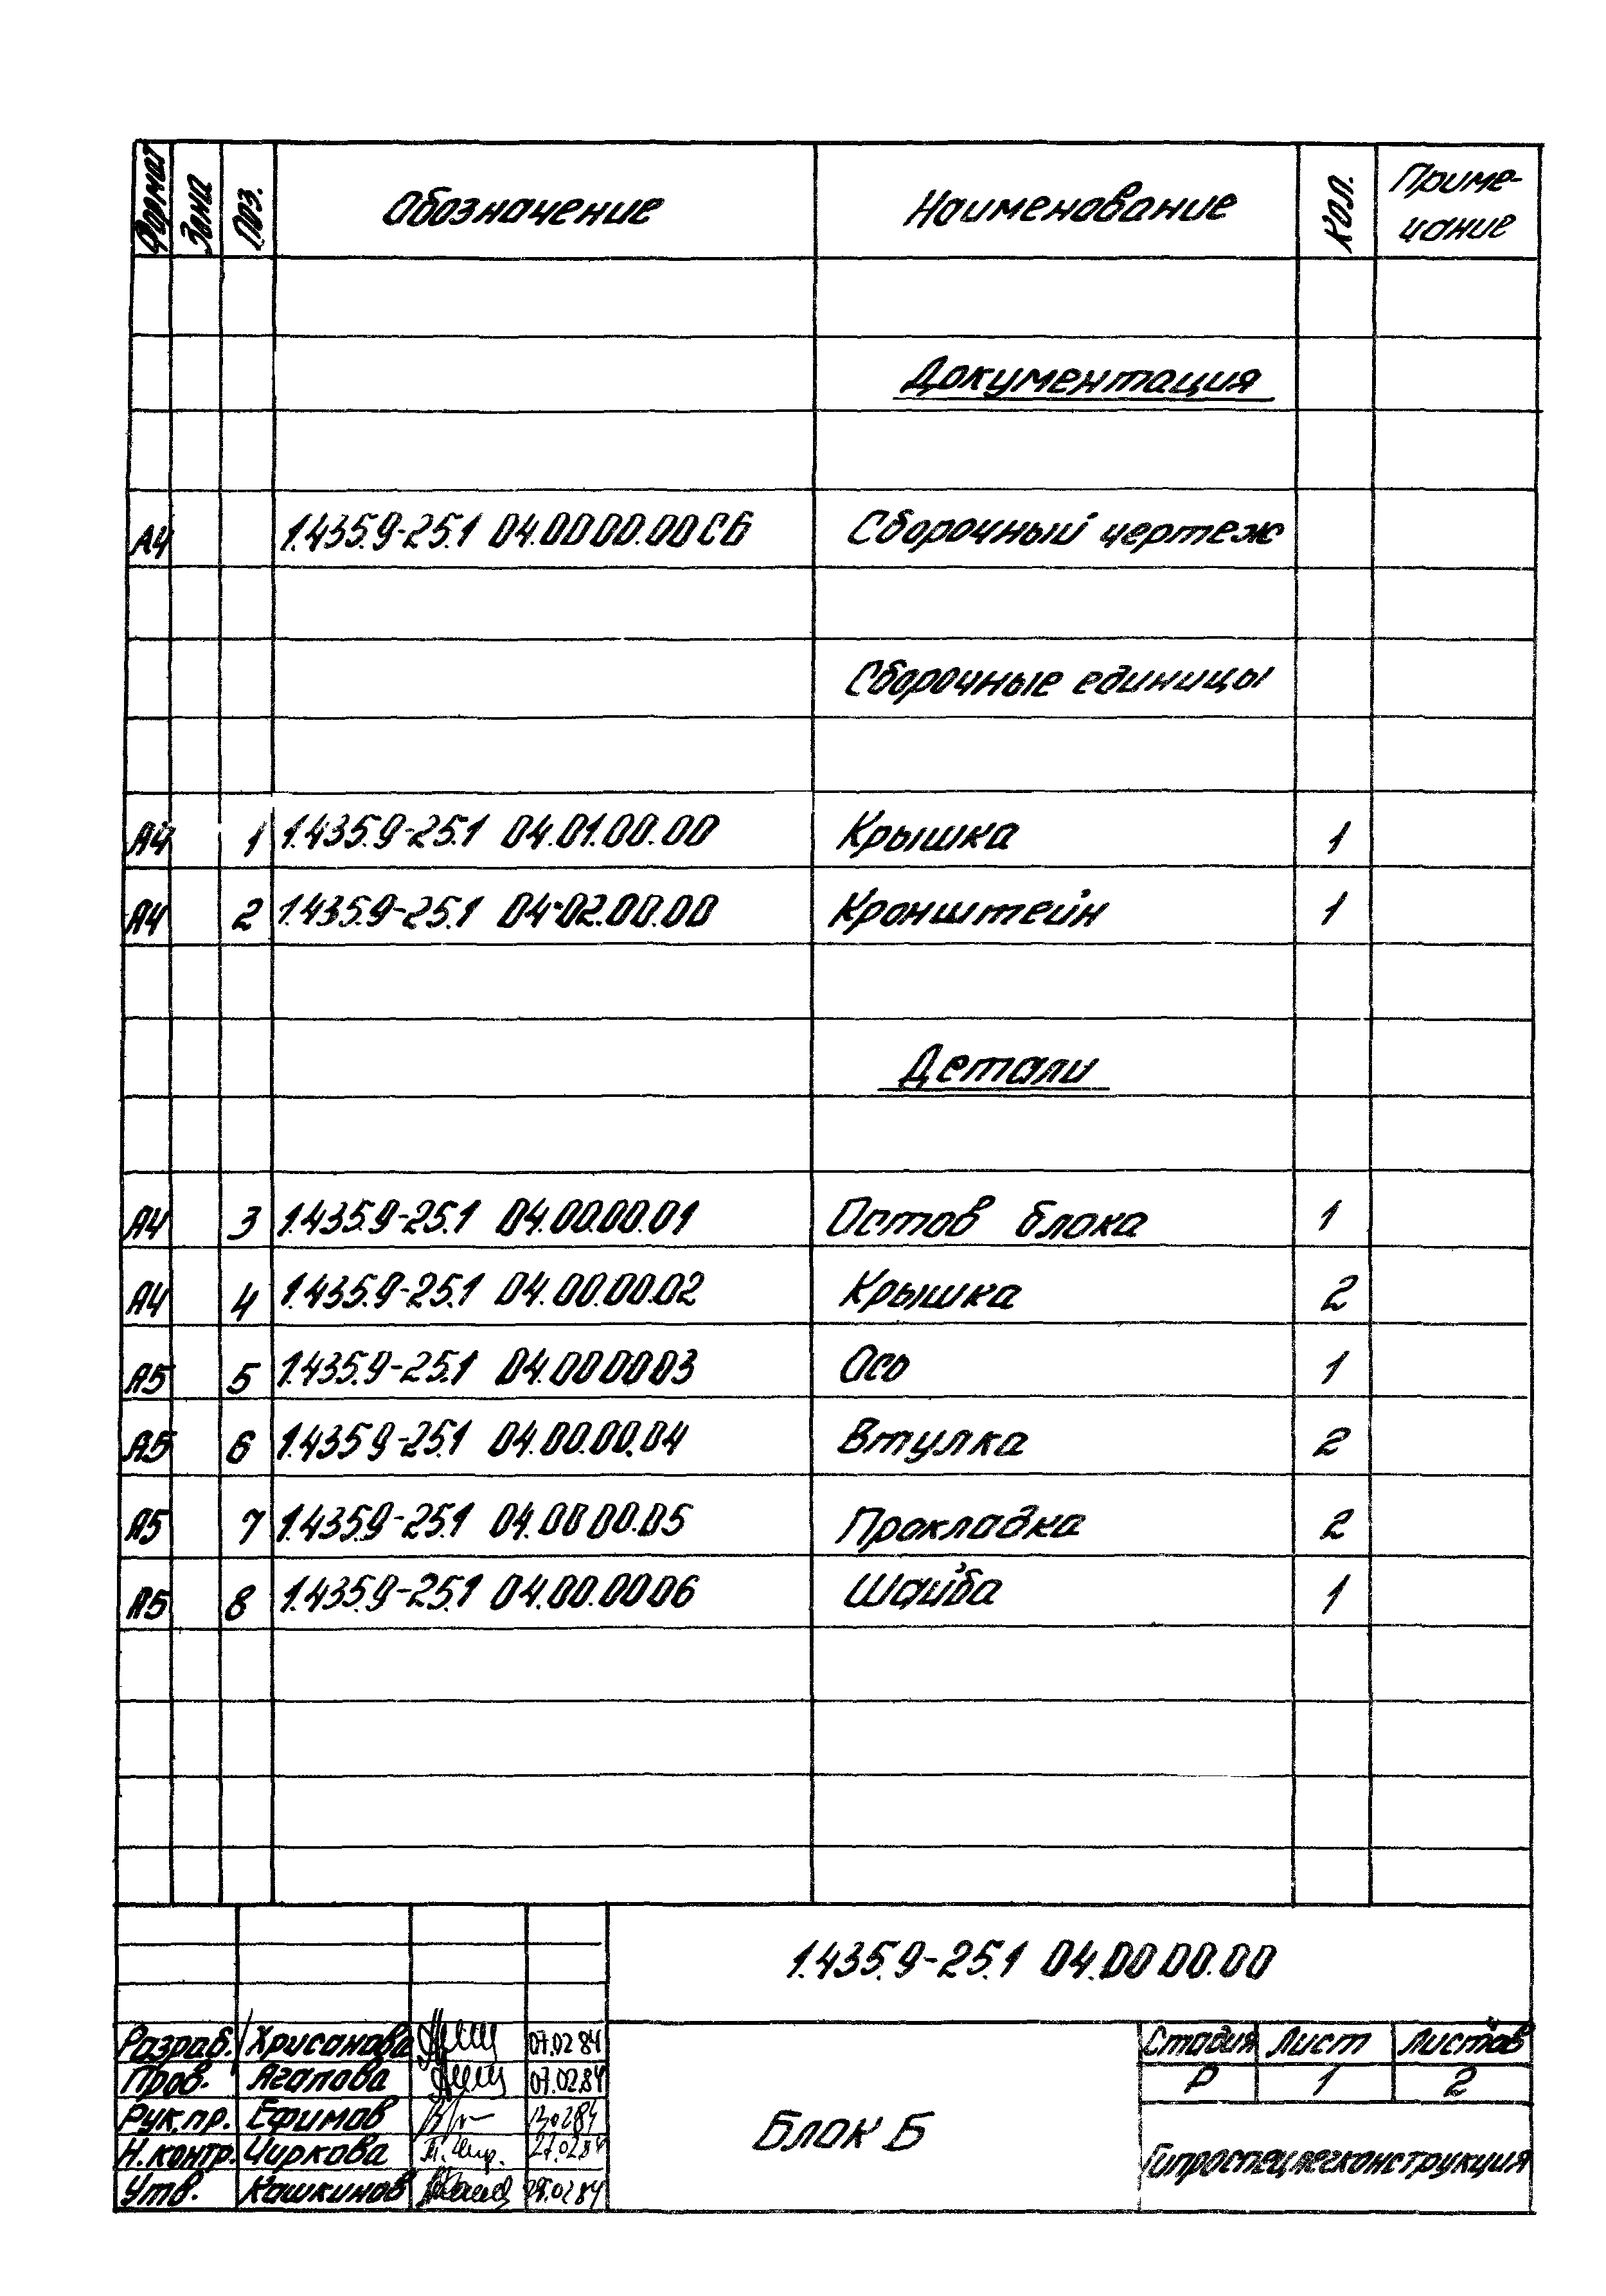 Формат Зона Поз. Обозначение Наименование Кол. Приме-
чание
Документация
А4 1.435.9-25.1 04.00 00.00 СБ Сборочный чертеж
Сборочные единицы
А4 1 1.435.9-25.1 04.01.00.00 Крышка 1
А4 2 1.435.9-25.1 04.02.00.00 Кронштейн 1
Детали
А4 3 1.435.9-25.1 04.00.00.01 Остов блока 1
А4 4 1.435.9-25.1 04.00.00.02 Крышка 2
А5 5 1.435.9-25.1 04.00 00 03 Ось 1
А5 6 1.435 9-25.1 04.00.00.04 Втулка 2
А5 7 1.435.9-25.1 04.00 00.05 Прокладка 2
А5 8 1.435.9-25.1 04.00.00 06 Шайба 1
1.435.9-25.1 04.00 00.00
Разраб. Хрисанова 07.02 84
Пров. Агапова 07.02.84
Рук.пр. Ефимов 13.02 84
Н.контр. Чиркова 27.02.84
Утв. Кашкинов 28.02 84
Блок Б
Стадия Лист Листов
Р 1 2
Гипроспецлегконструкция